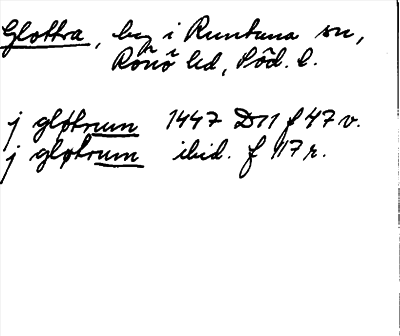 Glottra, by i Runtuna sn,
Rönö hd, Söd. l.
j gløtrum 1447 D11 f 47 v.
j gløtrum ibid. f 117 r.